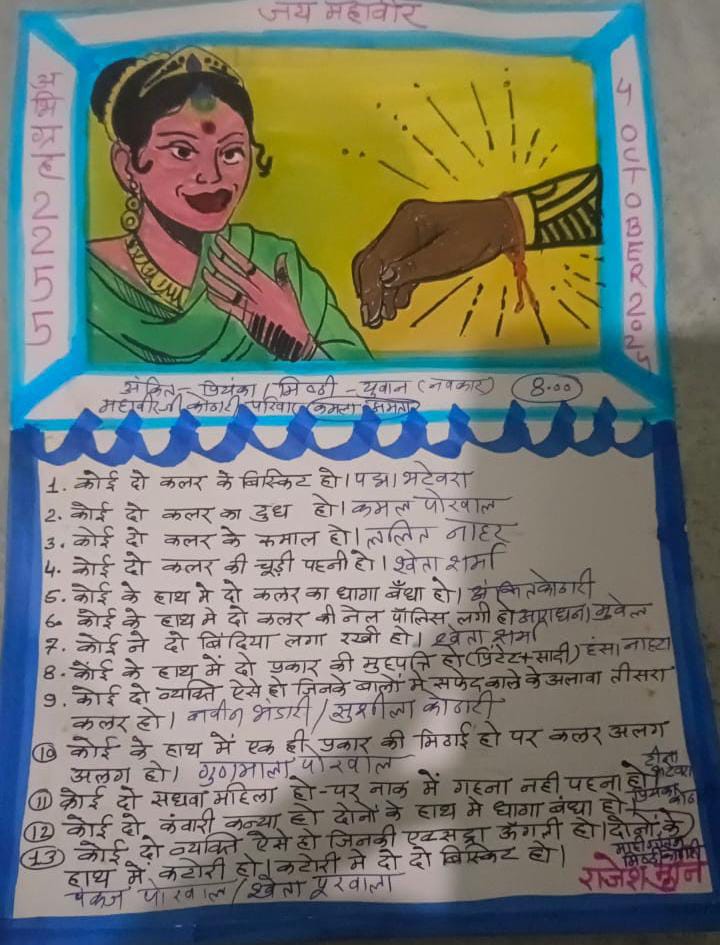 जय महावीर
अभिग्रह 2255
4 OCTOBER 2025
अंकित - प्रियंका / मिठ्ठी - युवान (नवकार) 8.00
महावीरजी कोठारी परिवार
1. कोई दो कलर के बिस्किट हो। पद्मा भटेवरा
2. कोई दो कलर का दुध हो। कमल पोरवाल
3. कोई दो कलर के रुमाल हो। ललित नाहर
4. कोई दो कलर की चूड़ी पहनी हो। श्वेता शर्मा
5. कोई के हाथ मे दो कलर का धागा बँधा हो। अंकित कोठारी
6. कोई के हाथ मे दो कलर की नेल पॉलिस लगी हो आराधना
7. कोई ने दो बिंदिया लगा रखी हो। श्वेता शर्मा
8. कोई के हाथ में दो प्रकार की मुहपत्ति हो (प्रिंटेट+सादी) हंसा नाहटा
9. कोई दो व्यक्ति ऐसे हो जिनके बालों में सफेद काले के अलावा तीसरा
कलर हो। नवीन भंडारी / सुशीला कोठारी
10 कोई के हाथ में एक ही प्रकार की मिठाई हो पर कलर अलग
अलग हो। गुणमाला पोरवाल
11 कोई दो सधवा महिला हो पर नाक में गहना नही पहना हो। टीना भटेवरा
12 कोई दो कंवारी कन्या हो दोनों के हाथ मे धागा बंधा हो।
13 कोई दो व्यक्ति ऐसे हो जिनकी एक्सट्रा ऊँगली हो। दोनों के
हाथ में कटोरी हो। कटोरी में दो दो बिस्किट हो।
पंकज पोरवाल / श्वेता पूरवाला
राजेश जैन